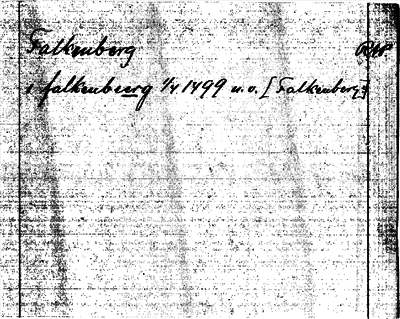 Falkenberg
i falkenbeerg 1/4 1499 u.o. [Falkenberg]